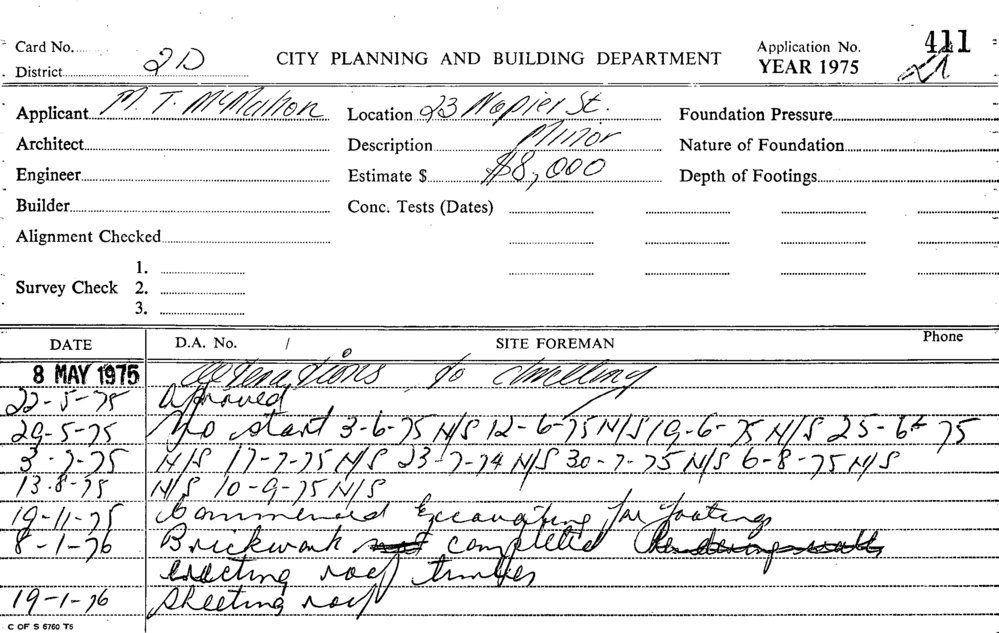 Card No. CITY PLANNING AND BUILDING DEPARTMENT Application No. 411
District 2D YEAR 1975 21
Applicant M. T. McMahon Location 23 Napier St. Foundation Pressure
Architect Description Minor Nature of Foundation
Engineer Estimate $ $8,000 Depth of Footings
Builder Conc. Tests (Dates)
Alignment Checked
1.
Survey Check 2.
3.
DATE D.A. No. / SITE FOREMAN Phone
8 MAY 1975 alterations to dwelling
22-5-75 Approved
29-5-75 No start 3-6-75 N/S 12-6-75 N/S 19-6-75 N/S 25-6-75
3-7-75 N/S 17-7-75 N/S 23-7-74 N/S 30-7-75 N/S 6-8-75 N/S
13-8-75 N/S 10-9-75 N/S
19-11-75 Commenced Excavating for footings
8-1-76 Brickwork not completed Rendering walls
erecting roof timbers
19-1-76 Sheeting roof
C OF S 6760 T5